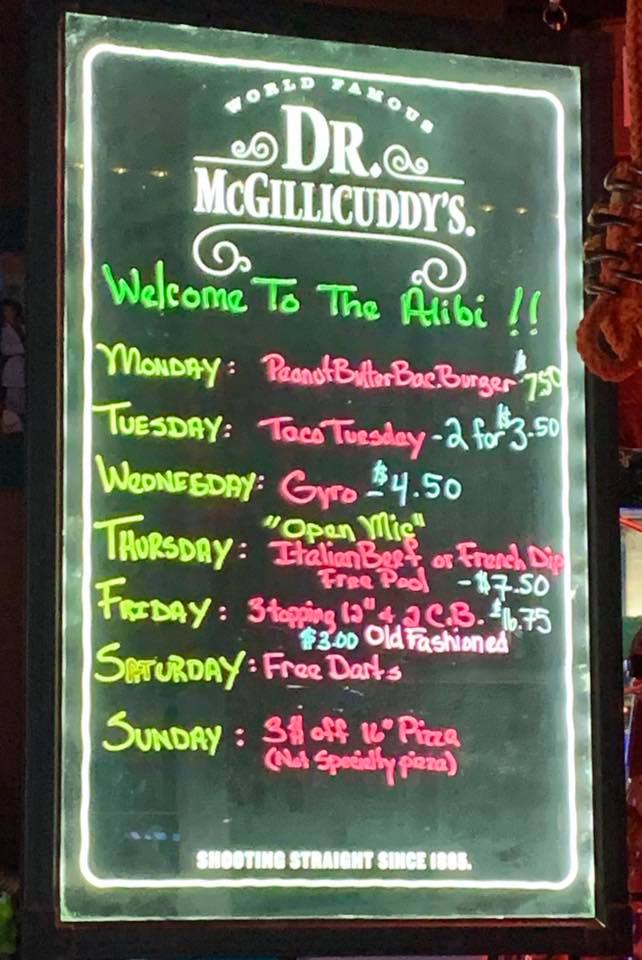 WORLD FAMOUS
DR.
McGILLICUDDY'S.
Welcome To The Alibi !!
MONDAY: Peanut Butter Bac. Burger - $7.50
TUESDAY: Taco Tuesday - 2 for $3.50
WEDNESDAY: Gyro - $4.50
"Open Mic"
THURSDAY: Italian Beef or French Dip
Free Pool - $7.50
FRIDAY: 3 topping 12" & 2 C.B. $16.75
$3.00 Old Fashioned
SATURDAY: Free Darts
SUNDAY: 3$ off 16" Pizza
(Not Specialty pizza)
SHOOTING STRAIGHT SINCE 1865.